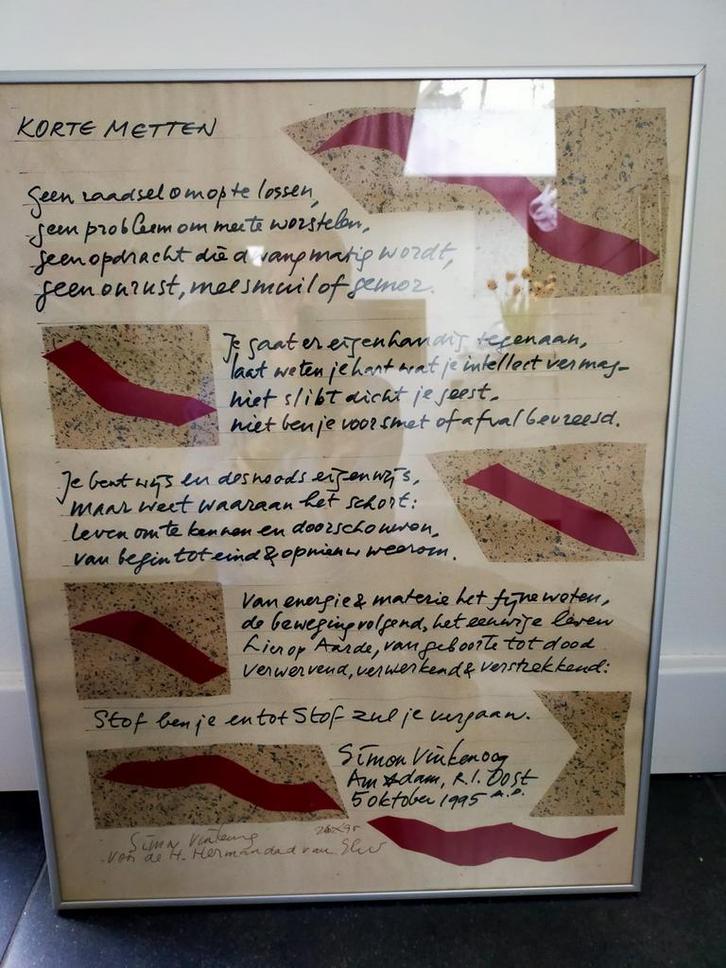 KORTE METTEN
geen raadsel om op te lossen,
geen probleem om mee te worstelen,
geen opdracht die dwangmatig wordt,
geen onrust, meesmuil of gemor.
Je gaat er eigenhandig tegenaan,
laat weten je hart wat je intellect vermag –
niet slibt dicht je geest,
niet ben je voor smet of afval bevreesd.
Je bent wijs en desnoods eigenwijs,
maar weet waaraan het schort:
leven om te kennen en doorschouwen,
van begin tot eind & opnieuw weerom.
Van energie & materie het fijne weten,
de beweging volgend, het eeuwige leven
hier op Aarde, van geboorte tot dood
verwervend, verwerkend & verstrekkend:
Stof ben je en tot Stof zul je vergaan.
Simon Vinkenoog
Amsdam, R.I. Oost
5 oktober 1995 A.D.
Simon Vinkenoog
voor de H. Hermandad van